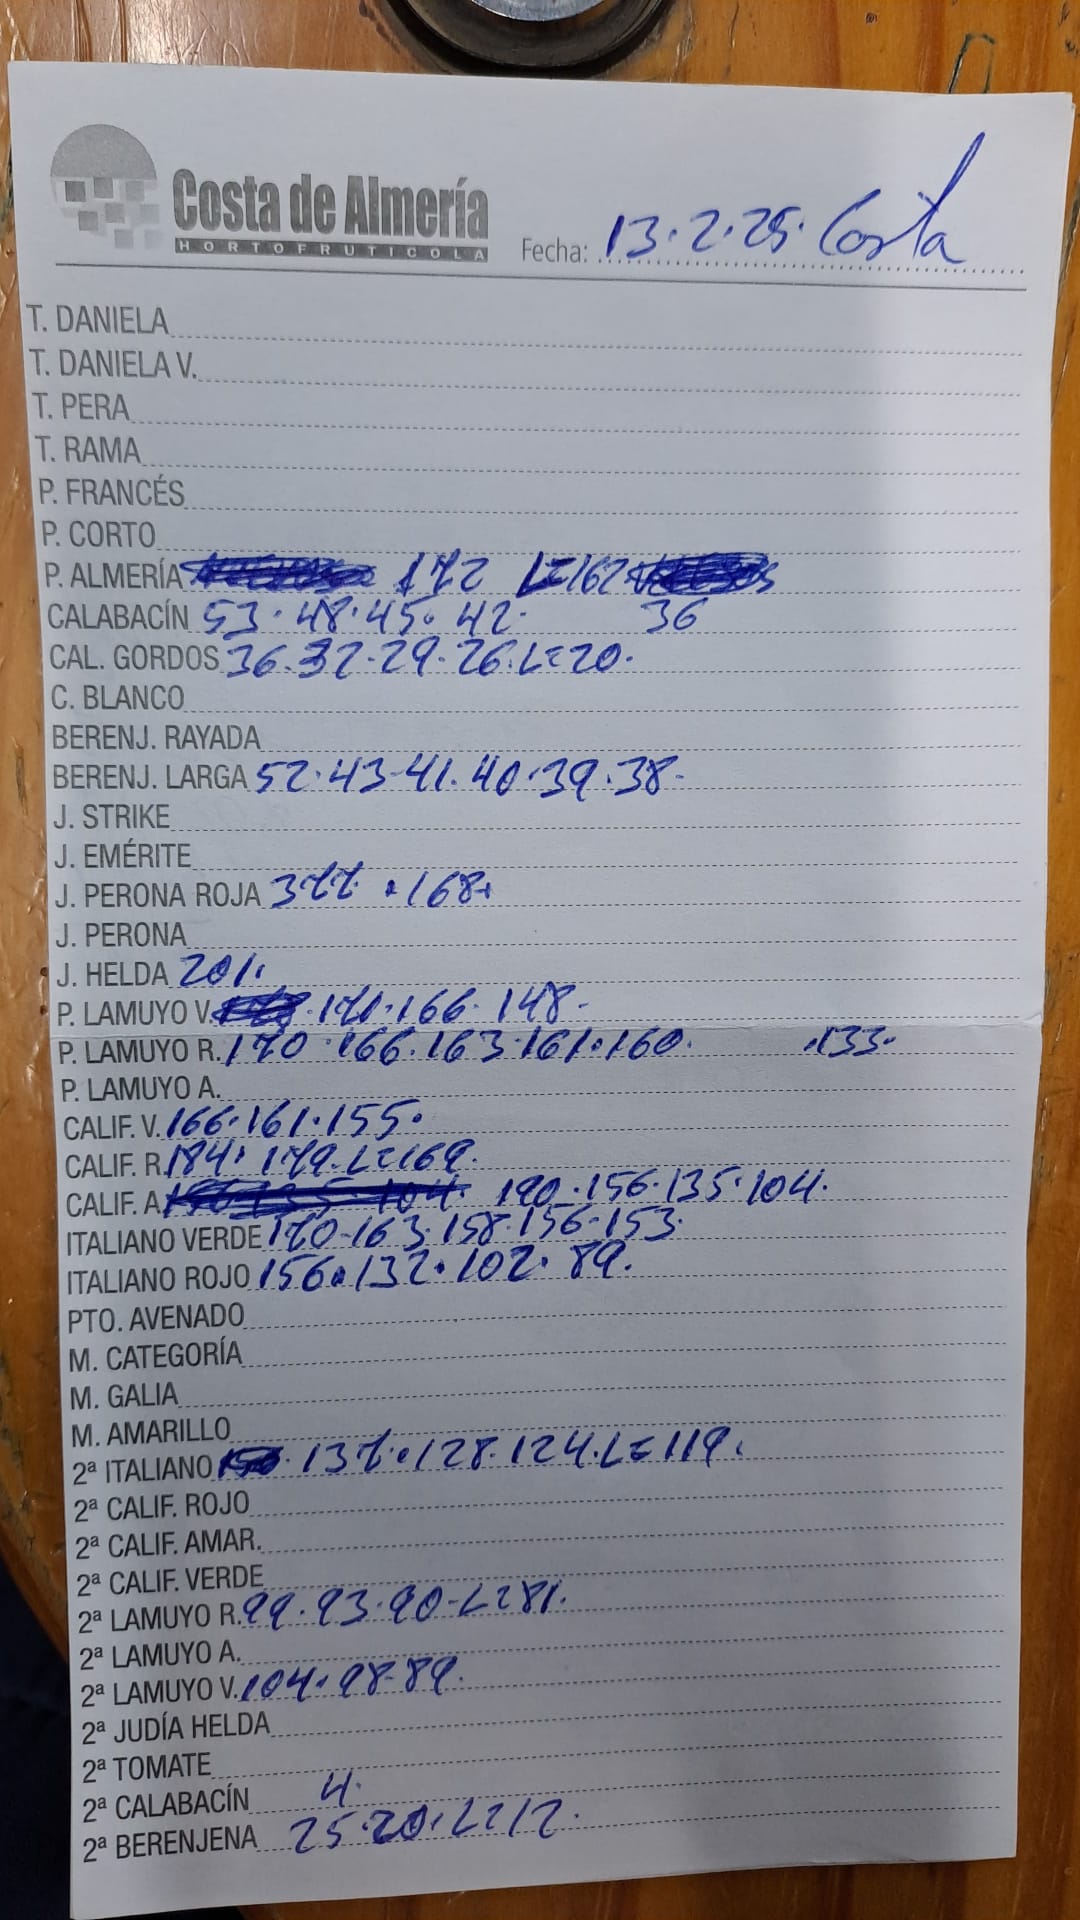 Costa de Almería
HORTOFRUTICOLA
Fecha: 13.2.25. Costa
T. DANIELA
T. DANIELA V.
T. PERA
T. RAMA
P. FRANCÉS
P. CORTO
P. ALMERÍA 172 L=162
CALABACÍN 53. 48. 45. 42. 36
CAL. GORDOS 36. 32. 29. 26. L=20.
C. BLANCO
BERENJ. RAYADA
BERENJ. LARGA 52. 43. 41. 40. 39. 38-
J. STRIKE
J. EMÉRITE
J. PERONA ROJA 377. .168.
J. PERONA
J. HELDA 201.
P. LAMUYO V. .171. 166. 148-
P. LAMUYO R. 170. 166. 163. 161. 160. .133.
P. LAMUYO A.
CALIF. V. 166. 161. 155.
CALIF. R. 184. 179. L=169.
CALIF. A 190. 156. 135. 104.
ITALIANO VERDE 170-163. 158. 156-153.
ITALIANO ROJO 156. 132. 102. 89.
PTO. AVENADO
M. CATEGORÍA
M. GALIA
M. AMARILLO
2ª ITALIANO . 137. 128. 124. L=119.
2ª CALIF. ROJO
2ª CALIF. AMAR.
2ª CALIF. VERDE
2ª LAMUYO R. 99. 93. 90-L=81.
2ª LAMUYO A.
2ª LAMUYO V. 104. 98-89.
2ª JUDÍA HELDA
2ª TOMATE
2ª CALABACÍN 4.
2ª BERENJENA 25-20. L=12.